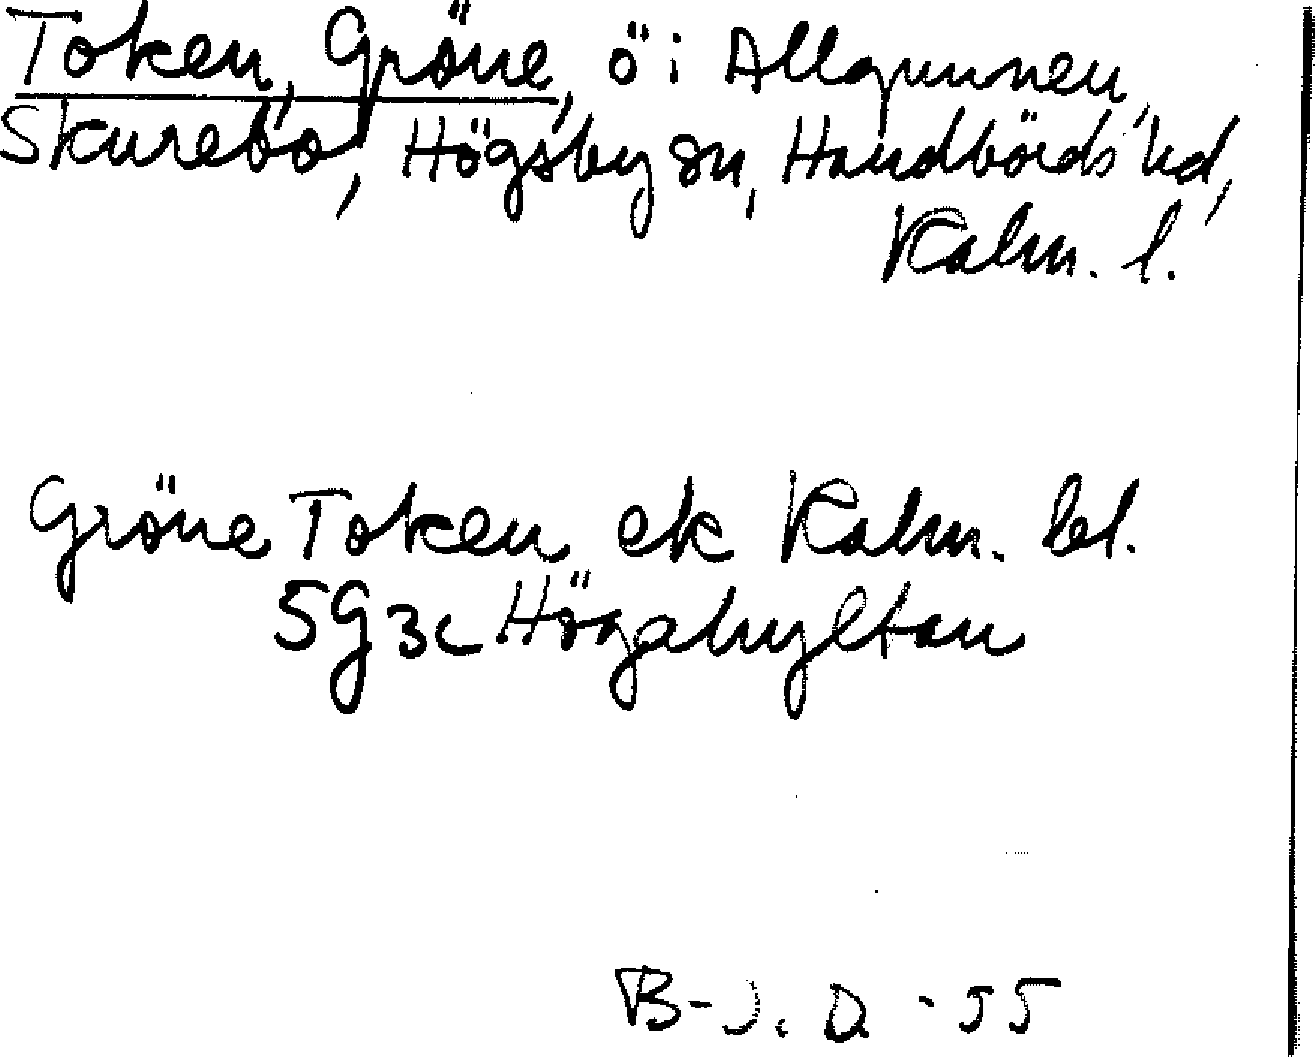 Token, Gröne, ö i Allgunnen,
Skurebo, Högsby sn, Handbörds hd,
Kalm. l.
Gröne Token ek Kalm. bl.
5G3c Högahyltan
B-J. D. -55